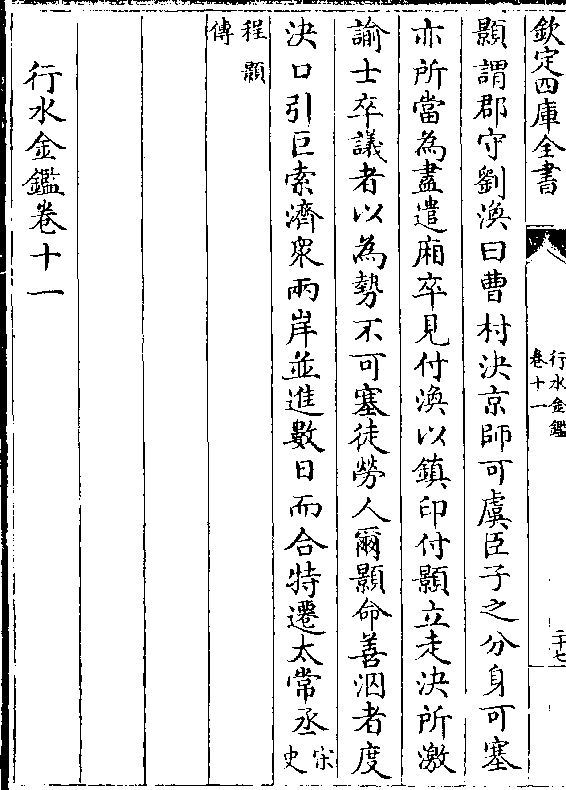 欽定四庫全書
行水金鑑
卷十一
二十七
顥謂郡守劉渙曰曹村決京師可虞臣子之分身可塞
亦所當為盡遣廂卒見付渙以鎮印付顥立走決所激
諭士卒議者以為勢不可塞徒勞人爾顥命善泅者度
決口引巨索濟衆兩岸並進數日而合特遷太常丞宋史
程顥傳
行水金鑑卷十一